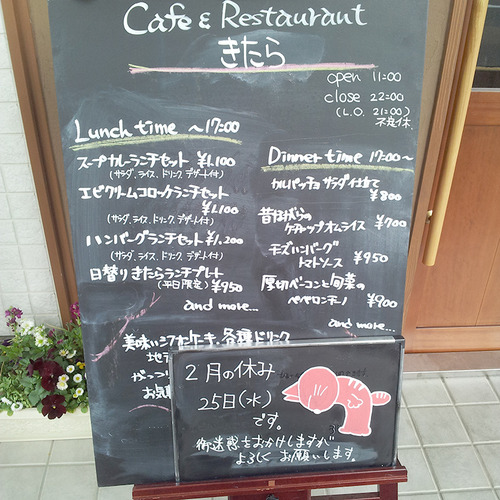 Cafe & Restaurant
きたら
open 11:00
close 22:00
(L.O. 21:00)
不定休
Lunch time ～17:00
スープカレーランチセット ¥1,100
(サラダ、ライス、ドリンク、デザート付)
エビクリームコロッケランチセット
¥1,100
(サラダ、ライス、ドリンク、デザート付)
ハンバーグランチセット ¥1,200
(サラダ、ライス、ドリンク、デザート付)
日替り きたらランチプレート
(平日限定) ¥950
and more...
Dinner time 17:00～
カルパッチョ サラダ仕立て
¥800
昔ながらの
ケチャップオムライス ¥700
チーズハンバーグ
トマトソース ¥950
厚切ベーコンと旬菜の
ペペロンチーノ ¥900
and more...
美味いシフォンケーキ、各種ドリンク
お気軽
2月の休み
25日(水)
です。
御迷惑をおかけしますが
よろしく お願いします。